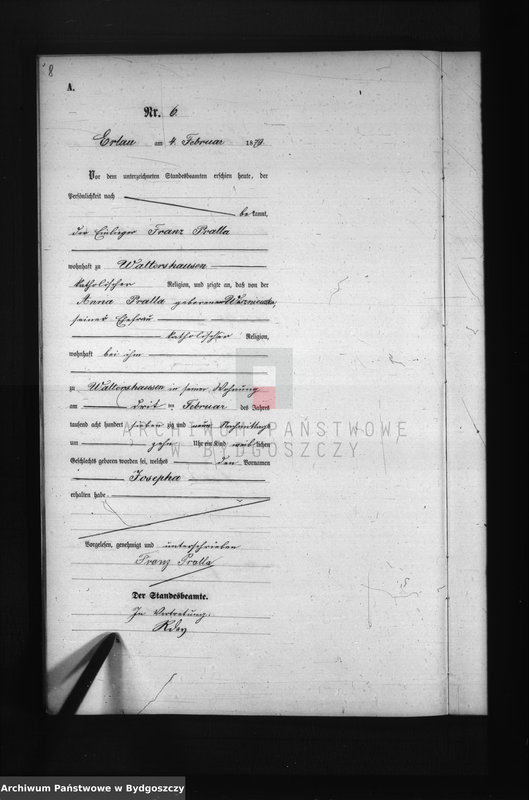 8
A.
Nr. 6
Erlau am 4. Februar 1879
Vor dem unterzeichneten Standesbeamten erschien heute, der
Persönlichkeit nach
bekannt,
der Einlieger Franz Pralla
wohnhaft zu Waltershausen
katholischer Religion, und zeigte an, daß von der
Anna Pralla geborenen
seiner Ehefrau
katholischer Religion,
wohnhaft bei ihm
zu Waltershausen in seiner Wohnung
am drit ten Februar des Jahres
tausend acht hundert sieben zig und neun Nachmittags
um zehn Uhr ein Kind weib lichen
Geschlechts geboren worden sei, welches den Vornamen
Josepha
erhalten habe
Vorgelesen, genehmigt und unterschrieben
Franz Pralla
Der Standesbeamte.
In Vertretung:
ARCHIWUM PAŃSTWOWE
W BYDGOSZCZY
Archiwum Państwowe w Bydgoszczy